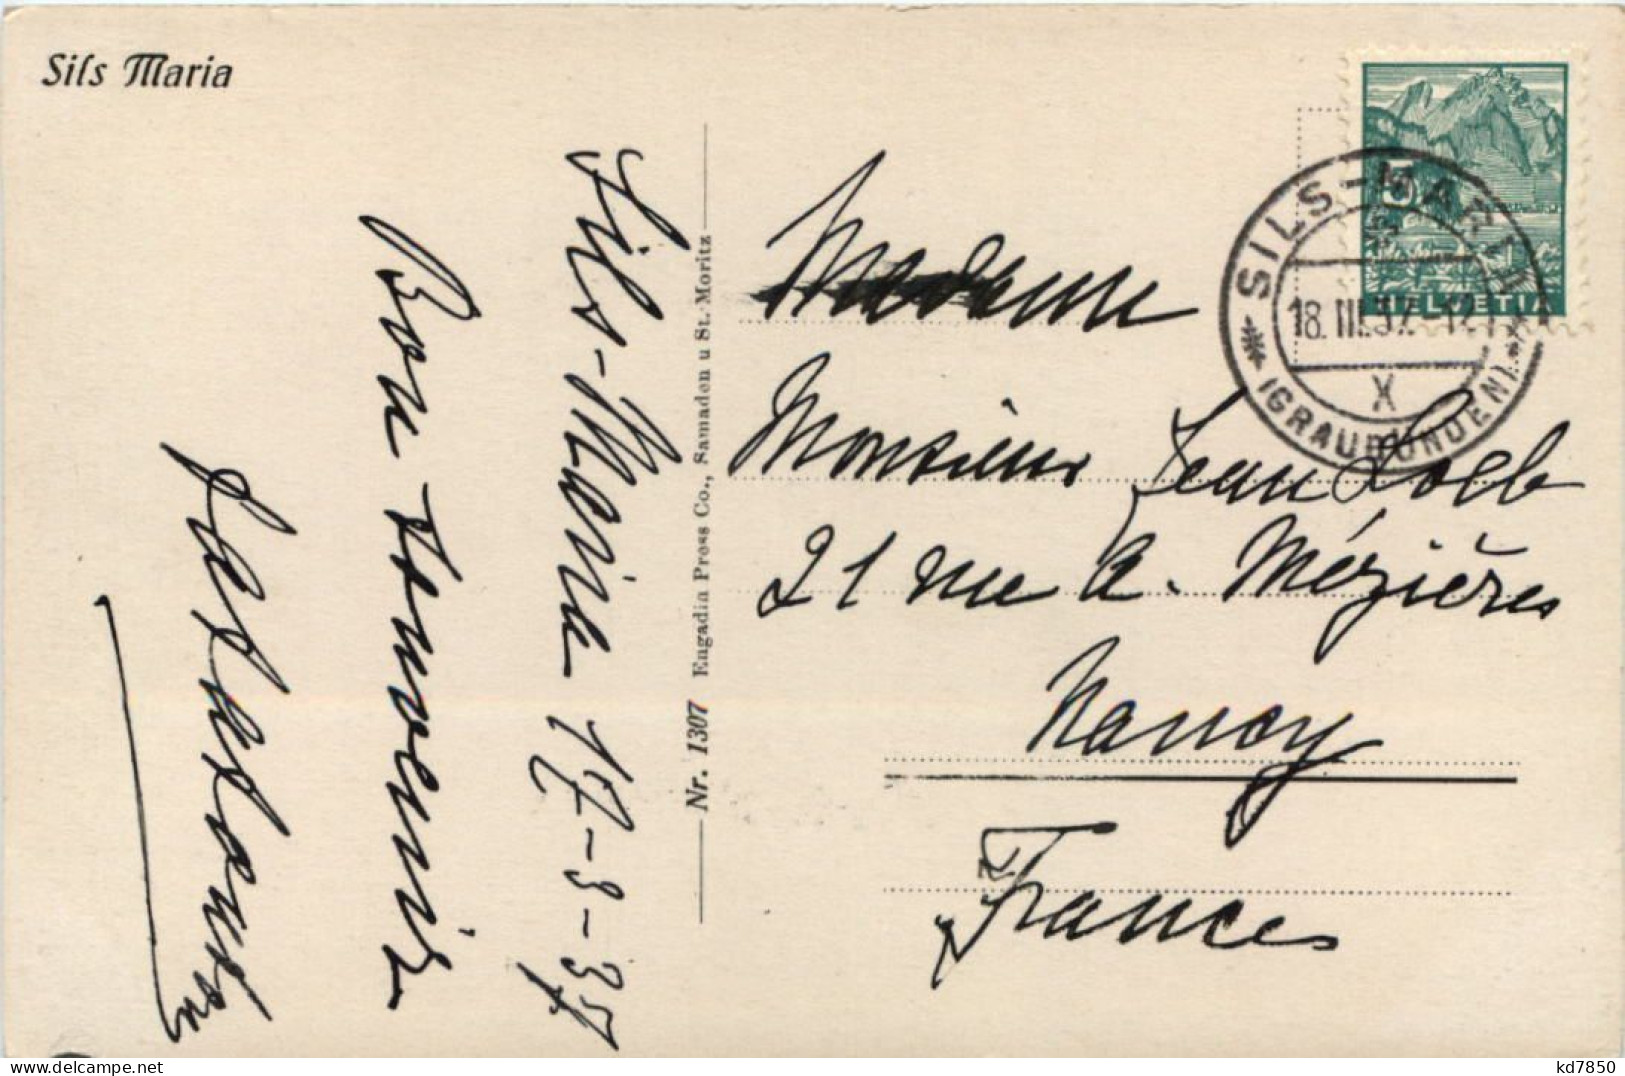 Sils Maria
Sils-Maria 17-3-37
Bon souvenir
Nr. 1307 Engadin Press Co., Samaden u St. Moritz
5
HELVETIA
SILS-MARIA
18. III. 37. 12
X
(GRAUBÜNDEN)
Madame
Monsieur Jean Loeb
21 rue de Mézières
Nancy
France
delcampe.net
kd7850